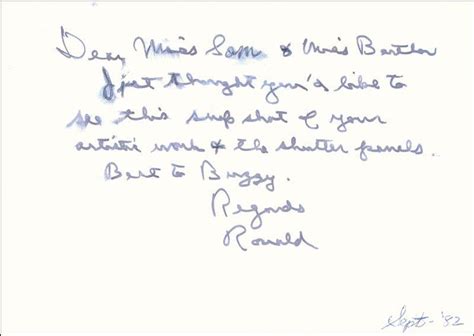 Dear Miss Sam & Miss
I just thought you'd like to
see this snap shot of your
artistic work & the shutter panels.
Best to Buzzy.
Regards
Ronald
Sept - '82